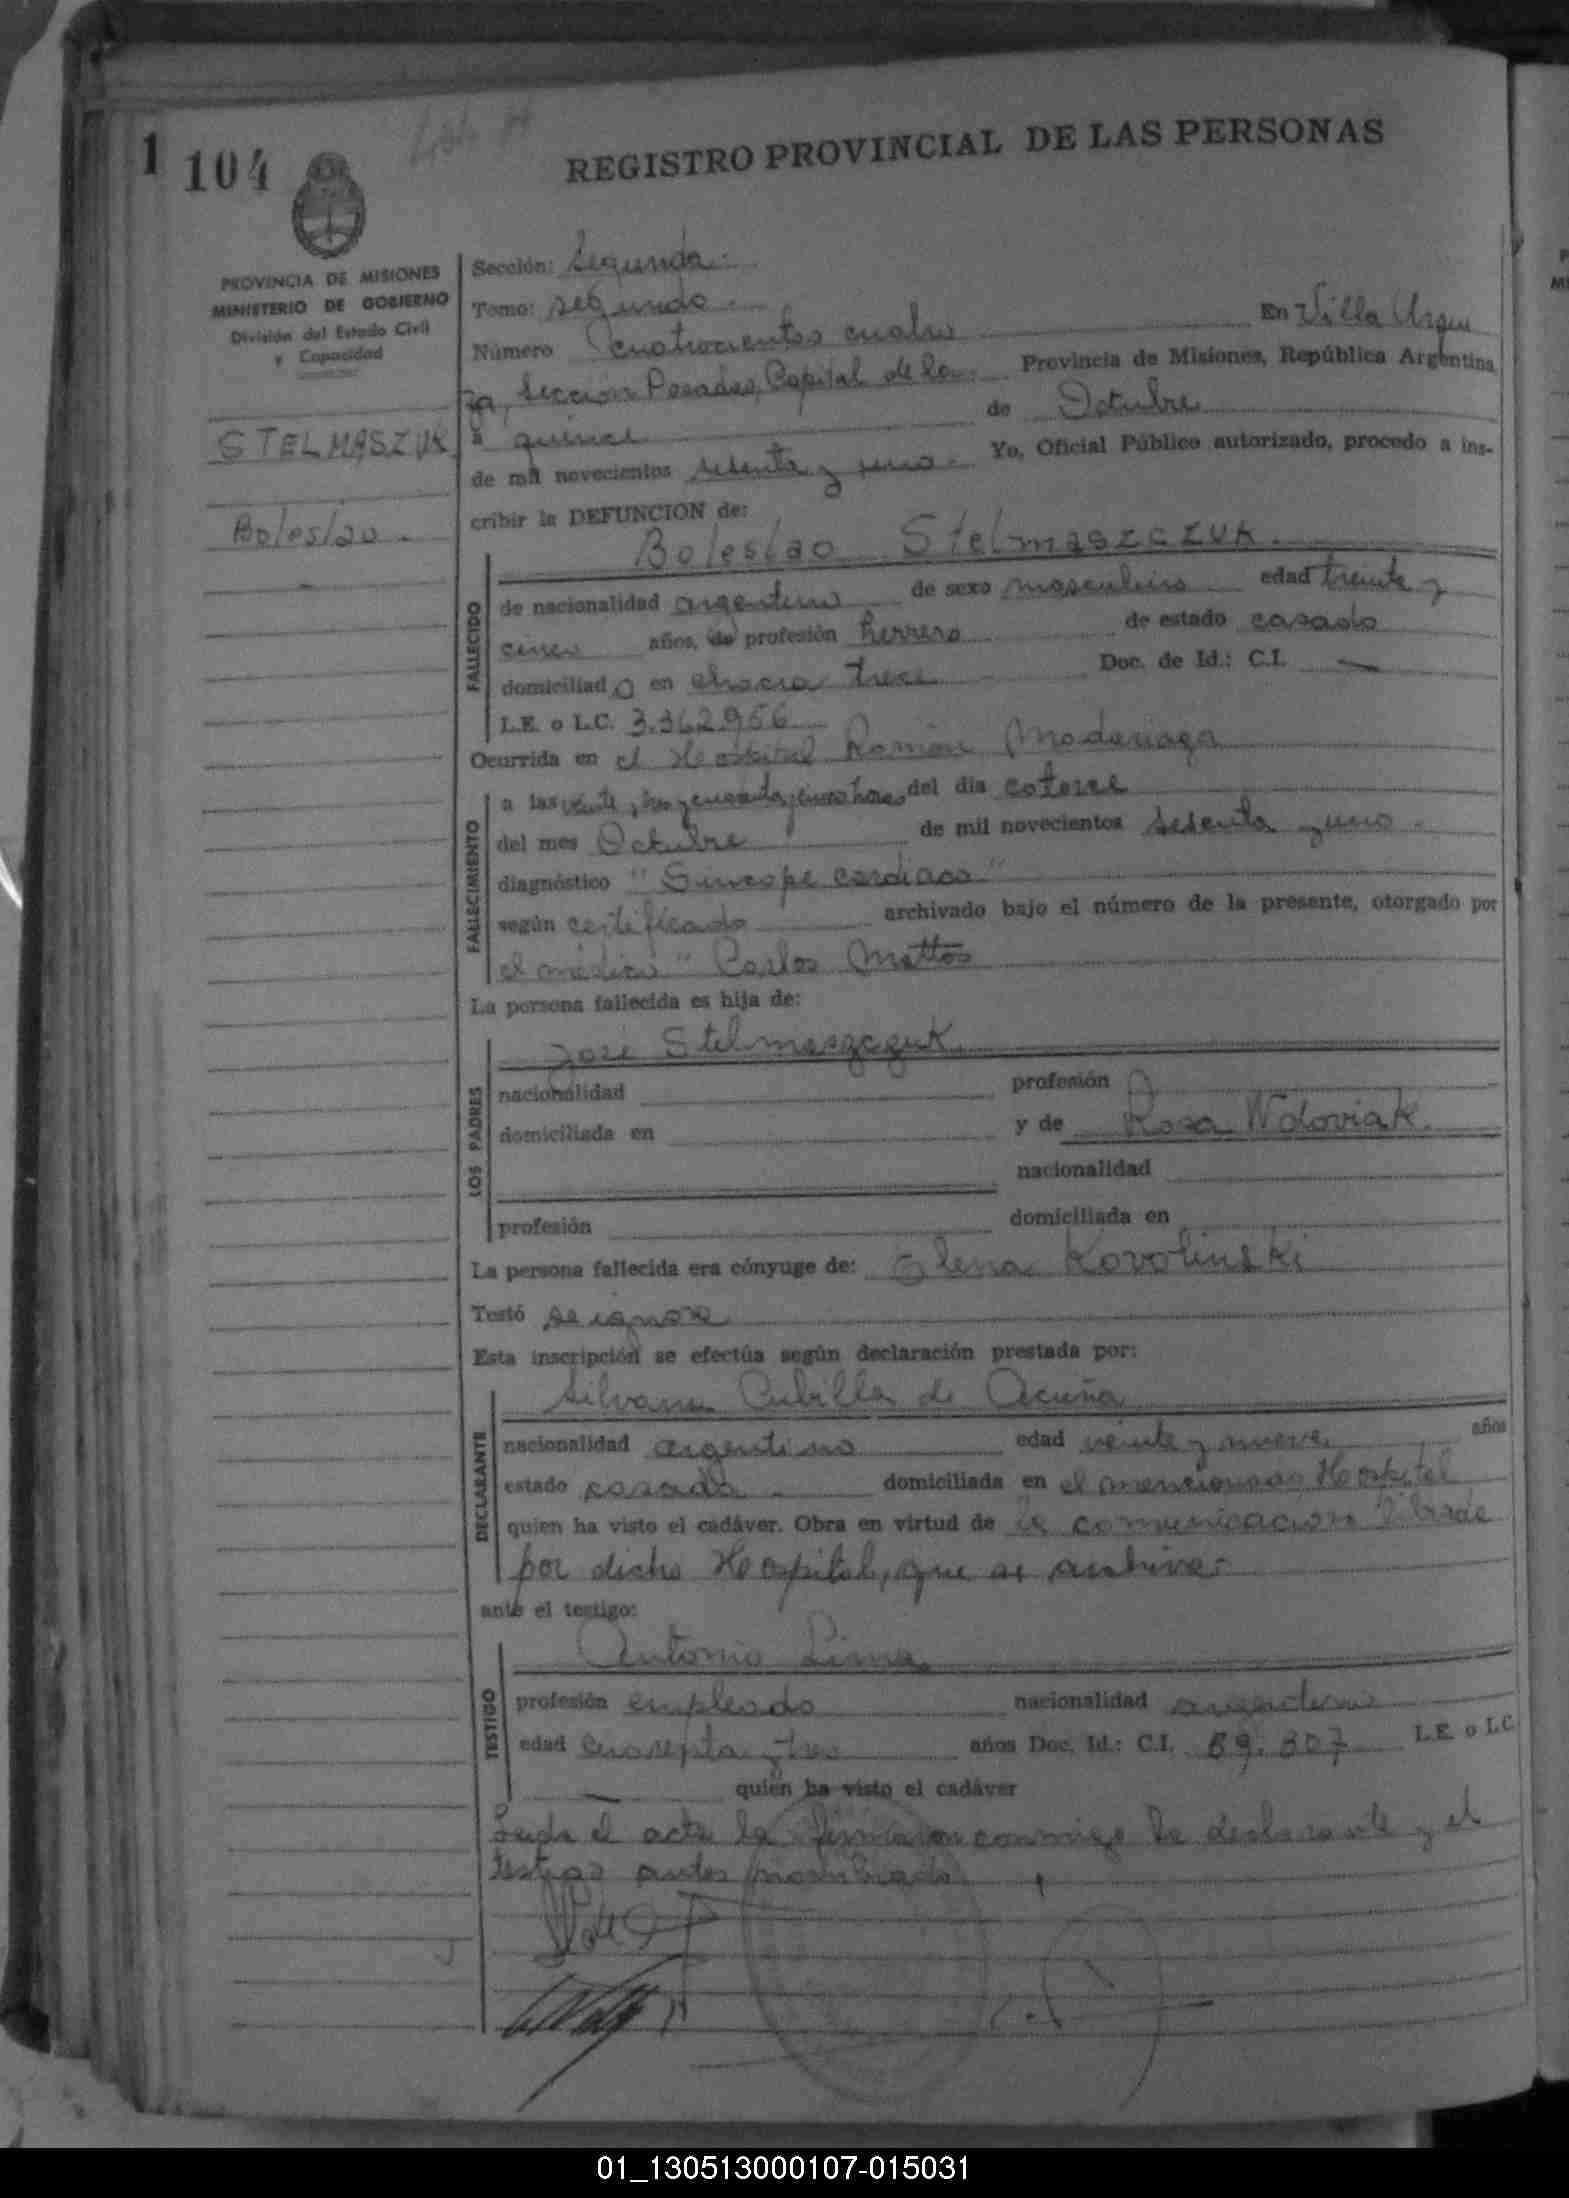 1 104
REGISTRO PROVINCIAL DE LAS PERSONAS
PROVINCIA DE MISIONES
MINISTERIO DE GOBIERNO
División del Estado Civil
y Capacidad
STELMASZUK
Boleslao.
Sección: Segunda.
Tomo: segundo.
Número cuatrocientos cuatro En Villa Urqui
za, Sección Posadas, Capital de la Provincia de Misiones, República Argentina
a quince de Octubre
de mil novecientos sesenta y uno. Yo, Oficial Público autorizado, procedo a ins-
cribir la DEFUNCION de:
Boleslao Stelmaszczuk.
FALLECIDO
de nacionalidad argentino de sexo masculino edad treinta y
cinco años, de profesión herrero de estado casado
domiciliado en chacra trece Doc. de Id.: C.I. —
L.E. o L.C. 3.362.956
Ocurrida en el Hospital Ramón Madariaga
FALLECIMIENTO
a las veinte y tres y cincuenta y cinco horas del día catorce
del mes Octubre de mil novecientos sesenta y uno.
diagnóstico "Sincope cardiaco"
según certificado archivado bajo el número de la presente, otorgado por
el médico " Carlos Mattos
La persona fallecida es hija de:
LOS PADRES
José Stelmaszczuk
nacionalidad profesión
domiciliada en y de Rosa Wdoviak.
nacionalidad
profesión domiciliada en
La persona fallecida era cónyuge de: Elena Kovolinski
Testó se ignora
Esta inscripción se efectúa según declaración prestada por:
DECLARANTE
Silvana Cubilla de Acuña
nacionalidad argentino edad veinte y nueve años
estado casada domiciliada en el mencionado Hospital
quien ha visto el cadáver. Obra en virtud de la comunicación librada
por dicho Hospital, que se archiva.
ante el testigo:
TESTIGO
Antonio Lima
profesión empleado nacionalidad argentino
edad cuarenta y tres años Doc. Id.: C.I. 59.307 L.E. o L.C.
— quien ha visto el cadáver
Leida el acta la firmaron conmigo la declarante y el
testigo antes nombrado
01_130513000107-015031